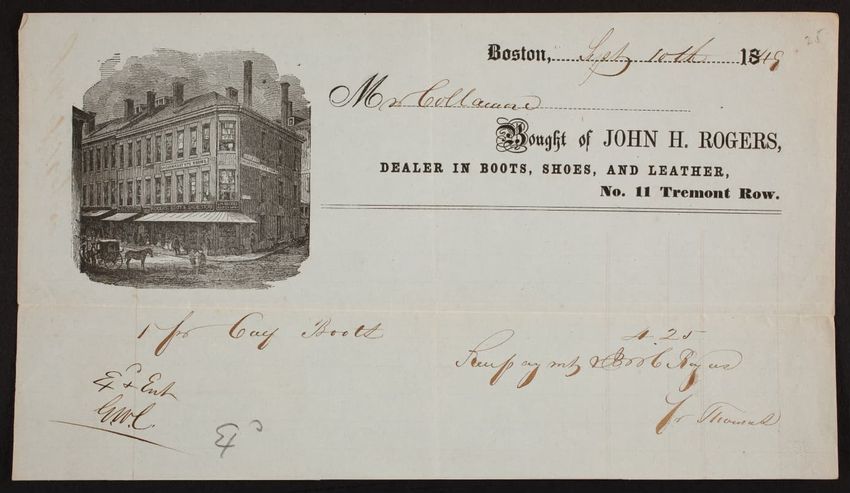 Boston, Sept 10th 1849
Mr Collamore
Bought of JOHN H. ROGERS,
DEALER IN BOOTS, SHOES, AND LEATHER,
No. 11 Tremont Row.
1 pr Calf Boots
4.25
Recd paymt
Ex & Ent
GWC
Ex
25